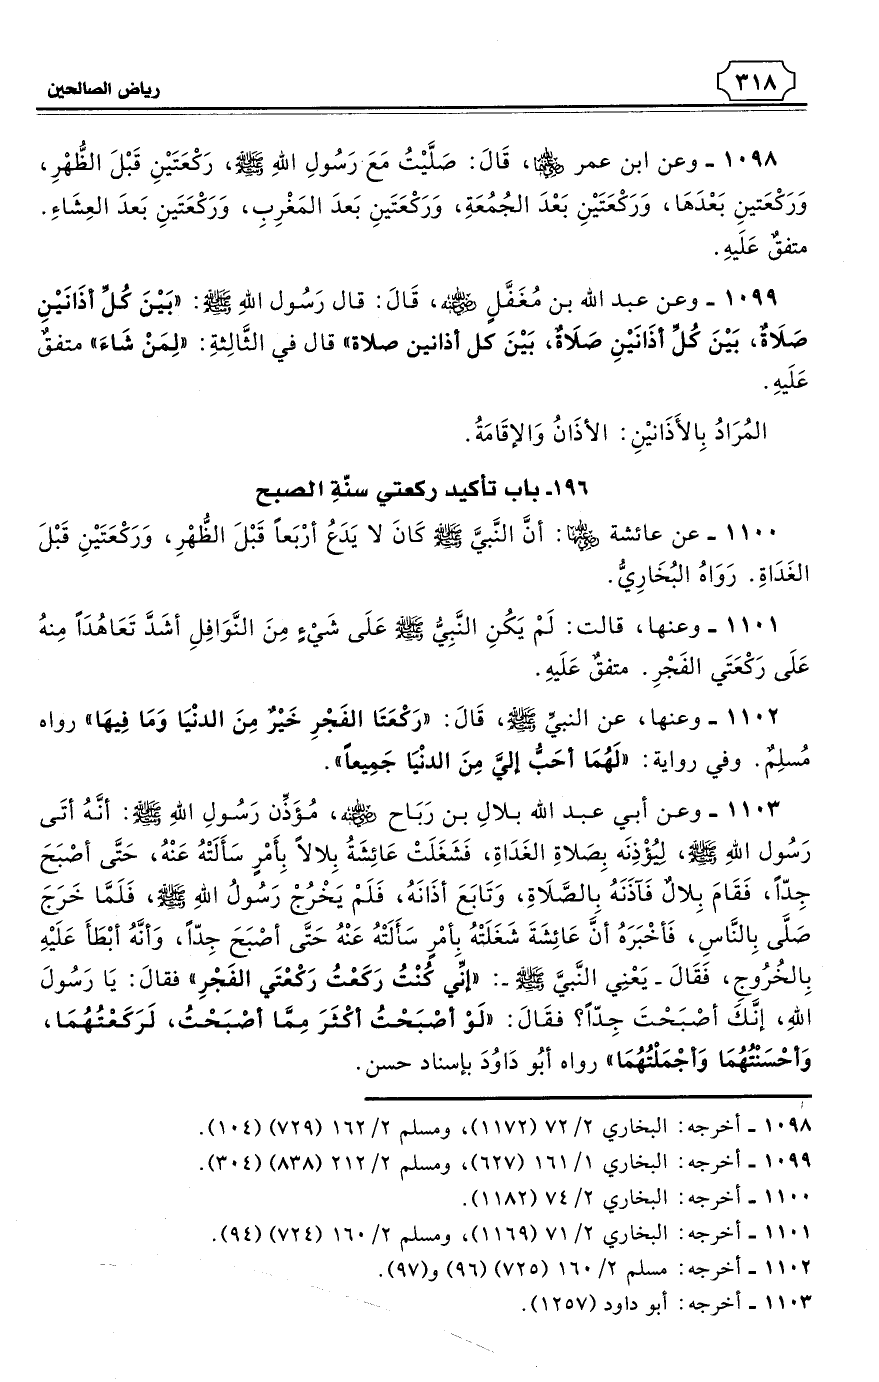 ٣١٨
رياض الصالحين
١٠٩٨ ـ وعن ابن عمر ﵄، قَالَ: صَلَّيْتُ مَعَ رَسُولِ اللهِ ﷺ، رَكْعَتَيْنِ قَبْلَ الظُّهْرِ،
وَرَكْعَتينِ بَعْدَهَا، وَرَكْعَتَيْنِ بَعْدَ الجُمُعَةِ، وَرَكْعَتَينِ بَعدَ المَغْرِبِ، وَرَكْعَتَينِ بَعدَ العِشَاءِ.
متفقٌ عَلَيهِ.
١٠٩٩ ـ وعن عبد الله بن مُغَفَّلٍ ﵁، قَالَ: قال رَسُول اللهِ ﷺ: «بَيْنَ كُلِّ أذَانَيْنِ
صَلَاةٌ، بَيْنَ كُلِّ أذَانَيْنِ صَلَاةٌ، بَيْنَ كل أذانين صلاة» قال في الثَّالِثةِ: «لِمَنْ شَاءَ» متفقٌ
عَلَيهِ.
المُرَادُ بِالأَذَانَيْنِ: الأذَانُ وَالإقَامَةُ.
١٩٦ـ باب تأكيد ركعتي سنّةِ الصبح
١١٠٠ ـ عن عائشة ﵂: أنَّ النَّبيَّ ﷺ كَانَ لا يَدَعُ أرْبَعاً قَبْلَ الظُّهْرِ، وَرَكْعَتَيْنِ قَبْلَ
الغَدَاةِ. رَوَاهُ البُخَارِيُّ.
١١٠١ ـ وعنها، قالت: لَمْ يَكُنِ النَّبِيُّ ﷺ عَلَى شَيْءٍ مِنَ النَّوَافِلِ أشَدَّ تَعَاهُدَاً مِنهُ
عَلَى رَكْعَتَي الفَجْرِ. متفقٌ عَلَيهِ.
١١٠٢ ـ وعنها، عن النبيِّ ﷺ، قَالَ: «رَكْعَتَا الفَجْرِ خَيْرٌ مِنَ الدنْيَا وَمَا فِيهَا» رواه
مُسلِمٌ. وفي رواية: «لَهُمَا أحَبُّ إليَّ مِنَ الدنْيَا جَمِيعاً».
١١٠٣ ـ وعن أبي عبد الله بلالِ بن رَبَاح ﵁، مُؤَذِّن رَسُولِ اللهِ ﷺ: أنَّهُ أتَى
رَسُول اللهِ ﷺ، لِيُؤْذِنَه بِصَلاةِ الغَدَاةِ، فَشَغَلَتْ عَائِشَةُ بِلالاً بِأَمْرٍ سَأَلَتْهُ عَنْهُ، حَتَّى أصْبَحَ
جِدّاً، فَقَامَ بِلالٌ فَآذَنَهُ بِالصَّلَاةِ، وَتَابَعَ أذَانَهُ، فَلَمْ يَخْرُجْ رَسُولُ اللهِ ﷺ، فَلَمَّا خَرَجَ
صَلَّى بِالنَّاسِ، فَأخْبَرَهُ أنَّ عَائِشَةَ شَغَلَتْهُ بِأمْرٍ سَأَلَتْهُ عَنْهُ حَتَّى أصْبَحَ جِدّاً، وَأنَّهُ أبْطَأَ عَلَيْهِ
بِالخُرُوجِ، فَقَالَ ـ يَعْنِي النَّبيَّ ﷺ ـ: «إنِّي كُنْتُ رَكَعْتُ رَكْعْتَي الفَجْرِ» فقالَ: يا رَسُولَ
اللهِ، إنَّكَ أصْبَحْتَ جِدّاً؟ فقَالَ: «لَوْ أصْبَحْتُ أكْثَرَ مِمَّا أصْبَحْتُ، لَرَكَعْتُهُمَا،
وَأحْسَنْتُهُمَا وَأجْمَلْتُهُمَا» رواه أَبُو دَاوُدَ بإسناد حسن.
١٠٩٨ ـ أخرجه: البخاري ٢/ ٧٢ (١١٧٢)، ومسلم ٢/ ١٦٢ (٧٢٩) (١٠٤).
١٠٩٩ ـ أخرجه: البخاري ١/ ١٦١ (٦٢٧)، ومسلم ٢/ ٢١٢ (٨٣٨) (٣٠٤).
١١٠٠ ـ أخرجه: البخاري ٢/ ٧٤ (١١٨٢).
١١٠١ ـ أخرجه: البخاري ٢/ ٧١ (١١٦٩)، ومسلم ٢/ ١٦٠ (٧٢٤) (٩٤).
١١٠٢ ـ أخرجه: مسلم ٢/ ١٦٠ (٧٢٥) (٩٦) و(٩٧).
١١٠٣ ـ أخرجه: أبو داود (١٢٥٧).